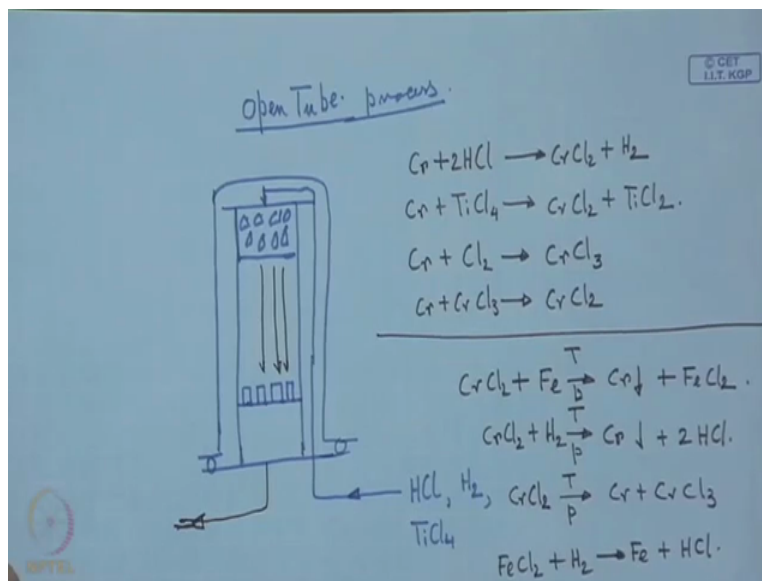 © CET
I.I.T. KGP
Open Tube process.
Cr + 2HCl → CrCl₂ + H₂
Cr + TiCl₄ → CrCl₂ + TiCl₂.
Cr + Cl₂ → CrCl₃
Cr + CrCl₃ → CrCl₂
CrCl₂ + Fe T→p Cr↓ + FeCl₂.
CrCl₂ + H₂ T→p Cr↓ + 2HCl.
CrCl₂ T→p Cr + CrCl₃
FeCl₂ + H₂ → Fe + HCl.
HCl, H₂,
TiCl₄
NPTEL